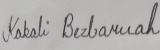 Kakali Bezbaruah